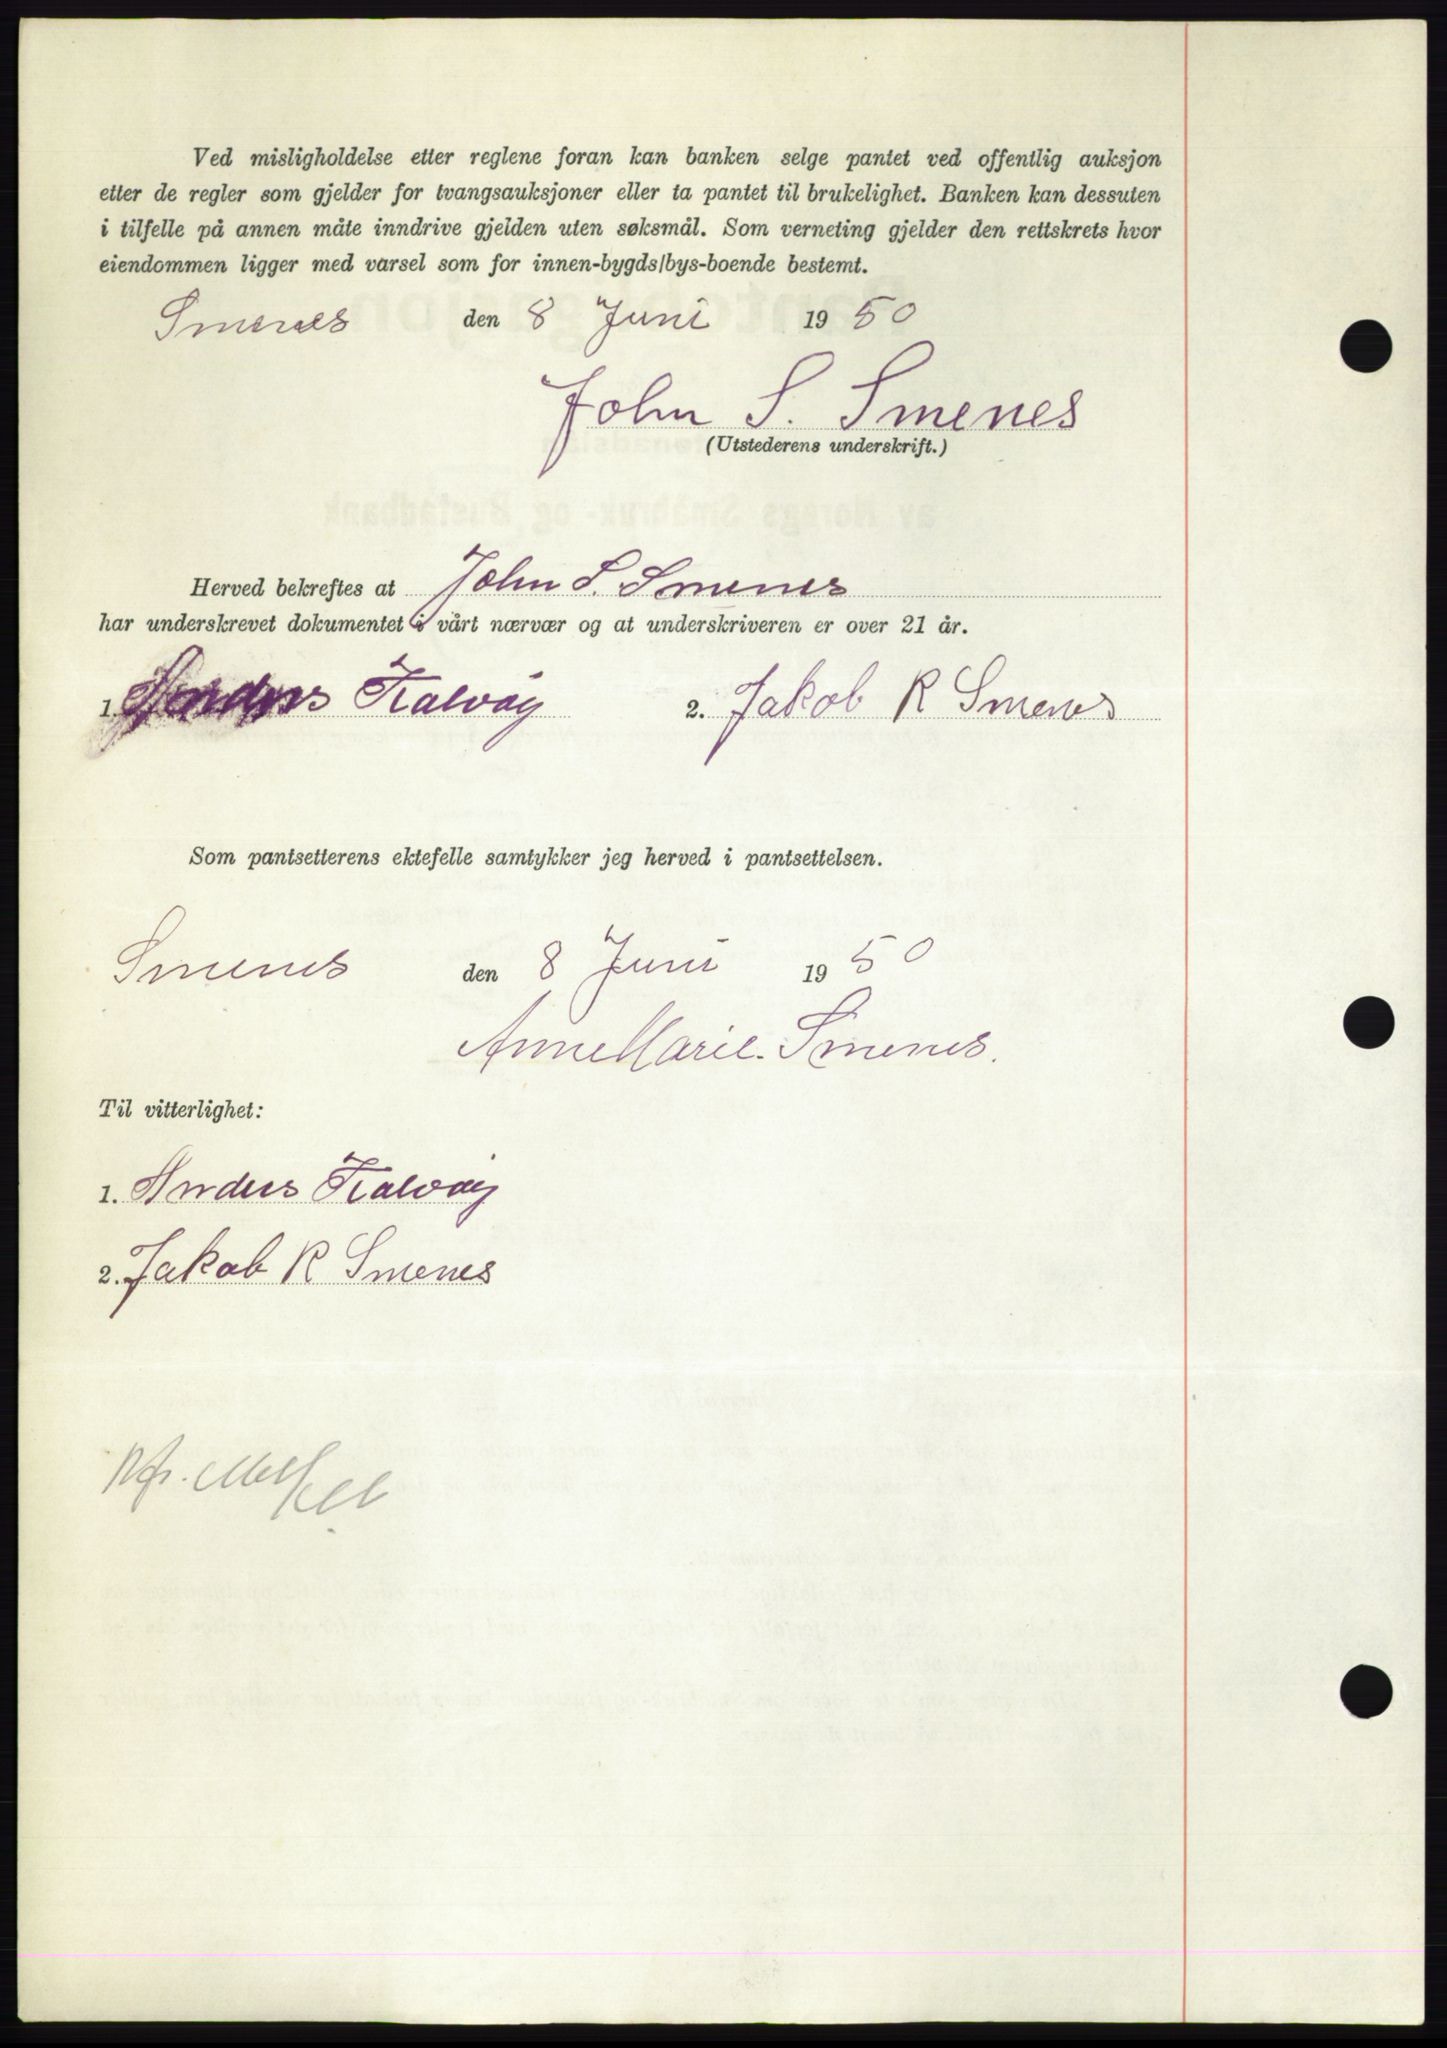 Ved misligholdelse etter reglene foran kan banken selge pantet ved offentlig auksjon
etter de regler som gjelder for tvangsauksjoner eller ta pantet til brukelighet. Banken kan dessuten
i tilfelle på annen måte inndrive gjelden uten søksmål. Som verneting gjelder den rettskrets hvor
eiendommen ligger med varsel som for innen-bygds/bys-boende bestemt.
Smenes den 8 Juni 1950
John S. Smenes
(Utstederens underskrift.)
Herved bekreftes at John S. Smenes
har underskrevet dokumentet i vårt nærvær og at underskriveren er over 21 år.
1. Anders Kalvåg 2. Jakob R Smenes
Som pantsetterens ektefelle samtykker jeg herved i pantsettelsen.
Smenes den 8 Juni 1950
Anne Marie Smenes.
Til vitterlighet:
1. Anders Kalvåg
2. Jakob R Smenes